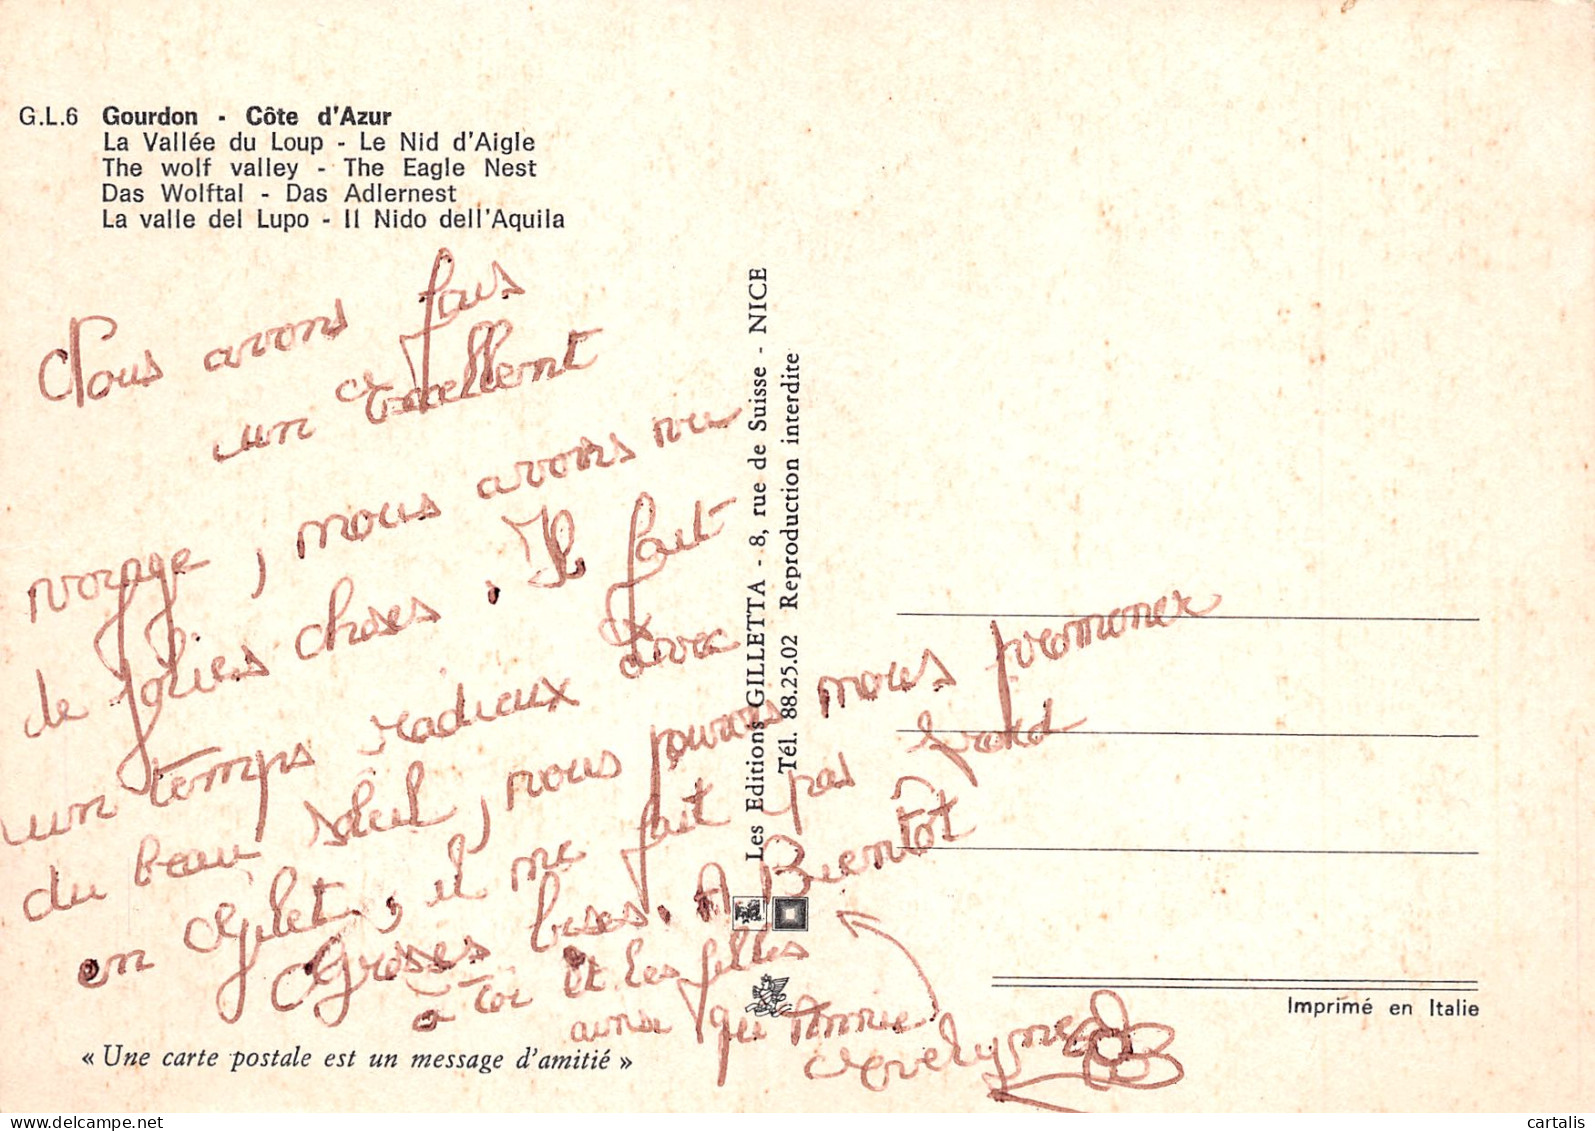 G.L.6 Gourdon - Côte d'Azur
La Vallée du Loup - Le Nid d'Aigle
The wolf valley - The Eagle Nest
Das Wolftal - Das Adlernest
La valle del Lupo - Il Nido dell'Aquila
Nous avons fais
un excellent
voyage, nous avons vu
de jolies choses. Il fait
un temps radieux avec
du beau soleil, nous pouvons nous promener
en gilet, il ne fait pas froid
Groses bises. A Bientôt
à toi et les filles
ainsi qu'Annie
Evelyne
Les Editions GILLETTA - 8, rue de Suisse - NICE
Tél. 88.25.02 Reproduction interdite
Imprimé en Italie
« Une carte postale est un message d'amitié »
cartalis
delcampe.net